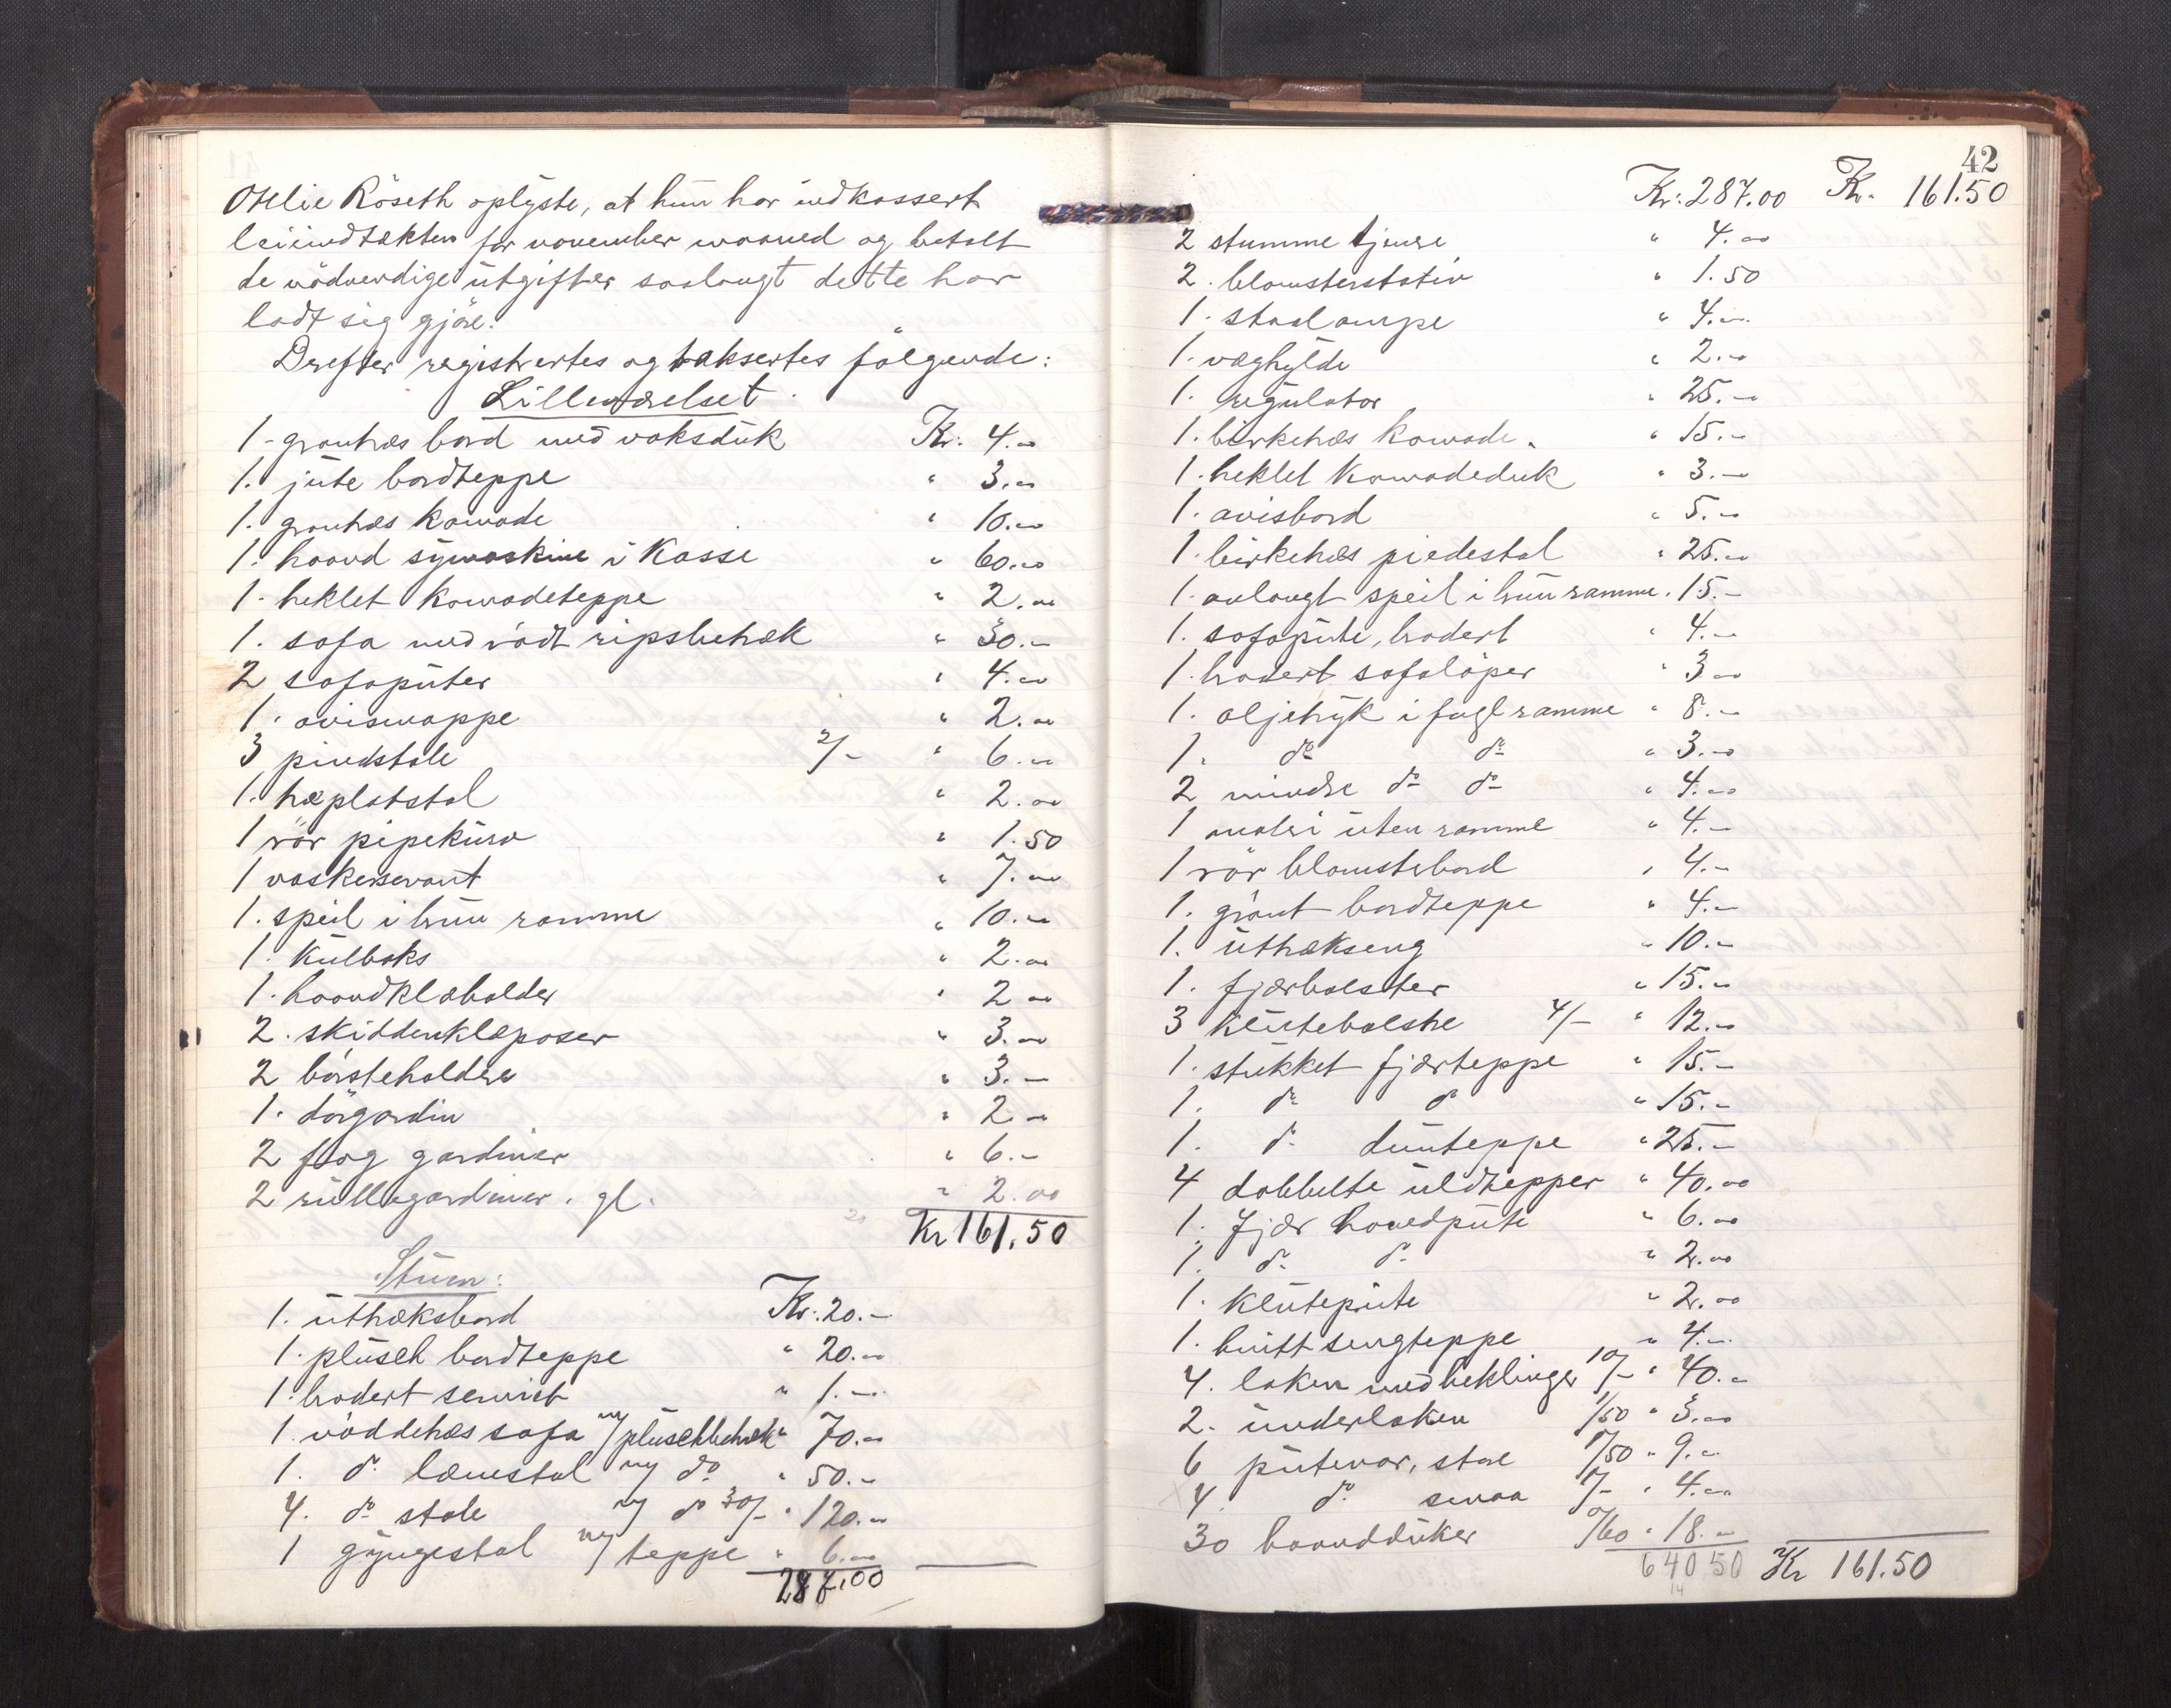 Otelie Röseth oplyste, at hun har indkassert
leieindtækten for november maaned og betalt
de nödvendige utgifter saalangt dette har
ladt sig gjöre.
Derefter registrertes og taksertes følgende:
Lilleværelset.
1 grantræs bord med voksduk Kr. 4.00
1. jute bordteppe " 3.00
1. grantræs komode " 10.00
1. haand symaskine i Kasse " 60.00
1. heklet Komodeteppe " 2.00
1. sofa med rödt ripsbetræk " 30.-
2 sofaputer " 4.00
1. avismappe " 2.00
3 pindstole 2/- " 6.00
1. træplatstol " 2.00
1 rör pipekurv " 1.50
1 vaskeservant " 7.00
1. speil i brun ramme " 10.00
1. Kulboks " 2.00
1. haandklæholder " 2.00
2. skiddenklæposer " 3.00
2 börsteholdere " 3.-
1. dörgardin " 2.00
2 fag gardiner " 6.-
2 rullegardiner. gl. " 2.00
Kr 161.50
Stuen:
1. uttræksbord Kr. 20.-
1. plüsch bordteppe " 20.00
1. brodert serviet " 1.-
1. röddetræs sofa m/ plüschbetræk " 70.00
1. do lænestol m/ do " 50.-
4. do stole m/ do 30/- " 120.00
1 gyngestol m/ teppe " 6.00
287.00
42
Kr. 287.00 Kr. 161.50
2 stumme tjenere " 4.00
2. blomsterstativ " 1.50
1. staalampe " 4.-
1. væghylde " 2.00
1. regulator " 25.-
1. birketræs Komode. " 15.-
1. heklet Komodeduk " 3.-
1. avisbord " 5.00
1. birketræs piedestal " 25.00
1. avlangt speil i brun ramme. 15.-
1. sofapute, brodert " 4.-
1. brodert sofalöper " 3.00
1. oljetryk i fugl ramme " 8.-
1. do do " 3.00
2 mindre do do " 4.00
1 maleri uten ramme " 4.-
1 rör blomsterbord " 4.-
1. grönt bordteppe " 4.-
1. uttrækseng " 10.-
1. fjærbolster " 15.-
3 Klutebolstre 4/- " 12.00
1. stukket fjærteppe " 15.-
1. do do " 15.-
1. do dunteppe " 25.-
4 dobbelte uldtepper " 40.00
1. fjær hovedpute " 6.00
1. do do " 2.00
1. Klutepute " 2.00
1. hvitt sengteppe " 4.-
4. laken med heklinger 10/- " 40.-
2. underlaken 1/50 " 3.00
6 putevar, store 1/50 " 9.-
4. do smaa 1/- " 4.00
30 haandduker /60 " 18.-
640 50 Kr 161.50
14